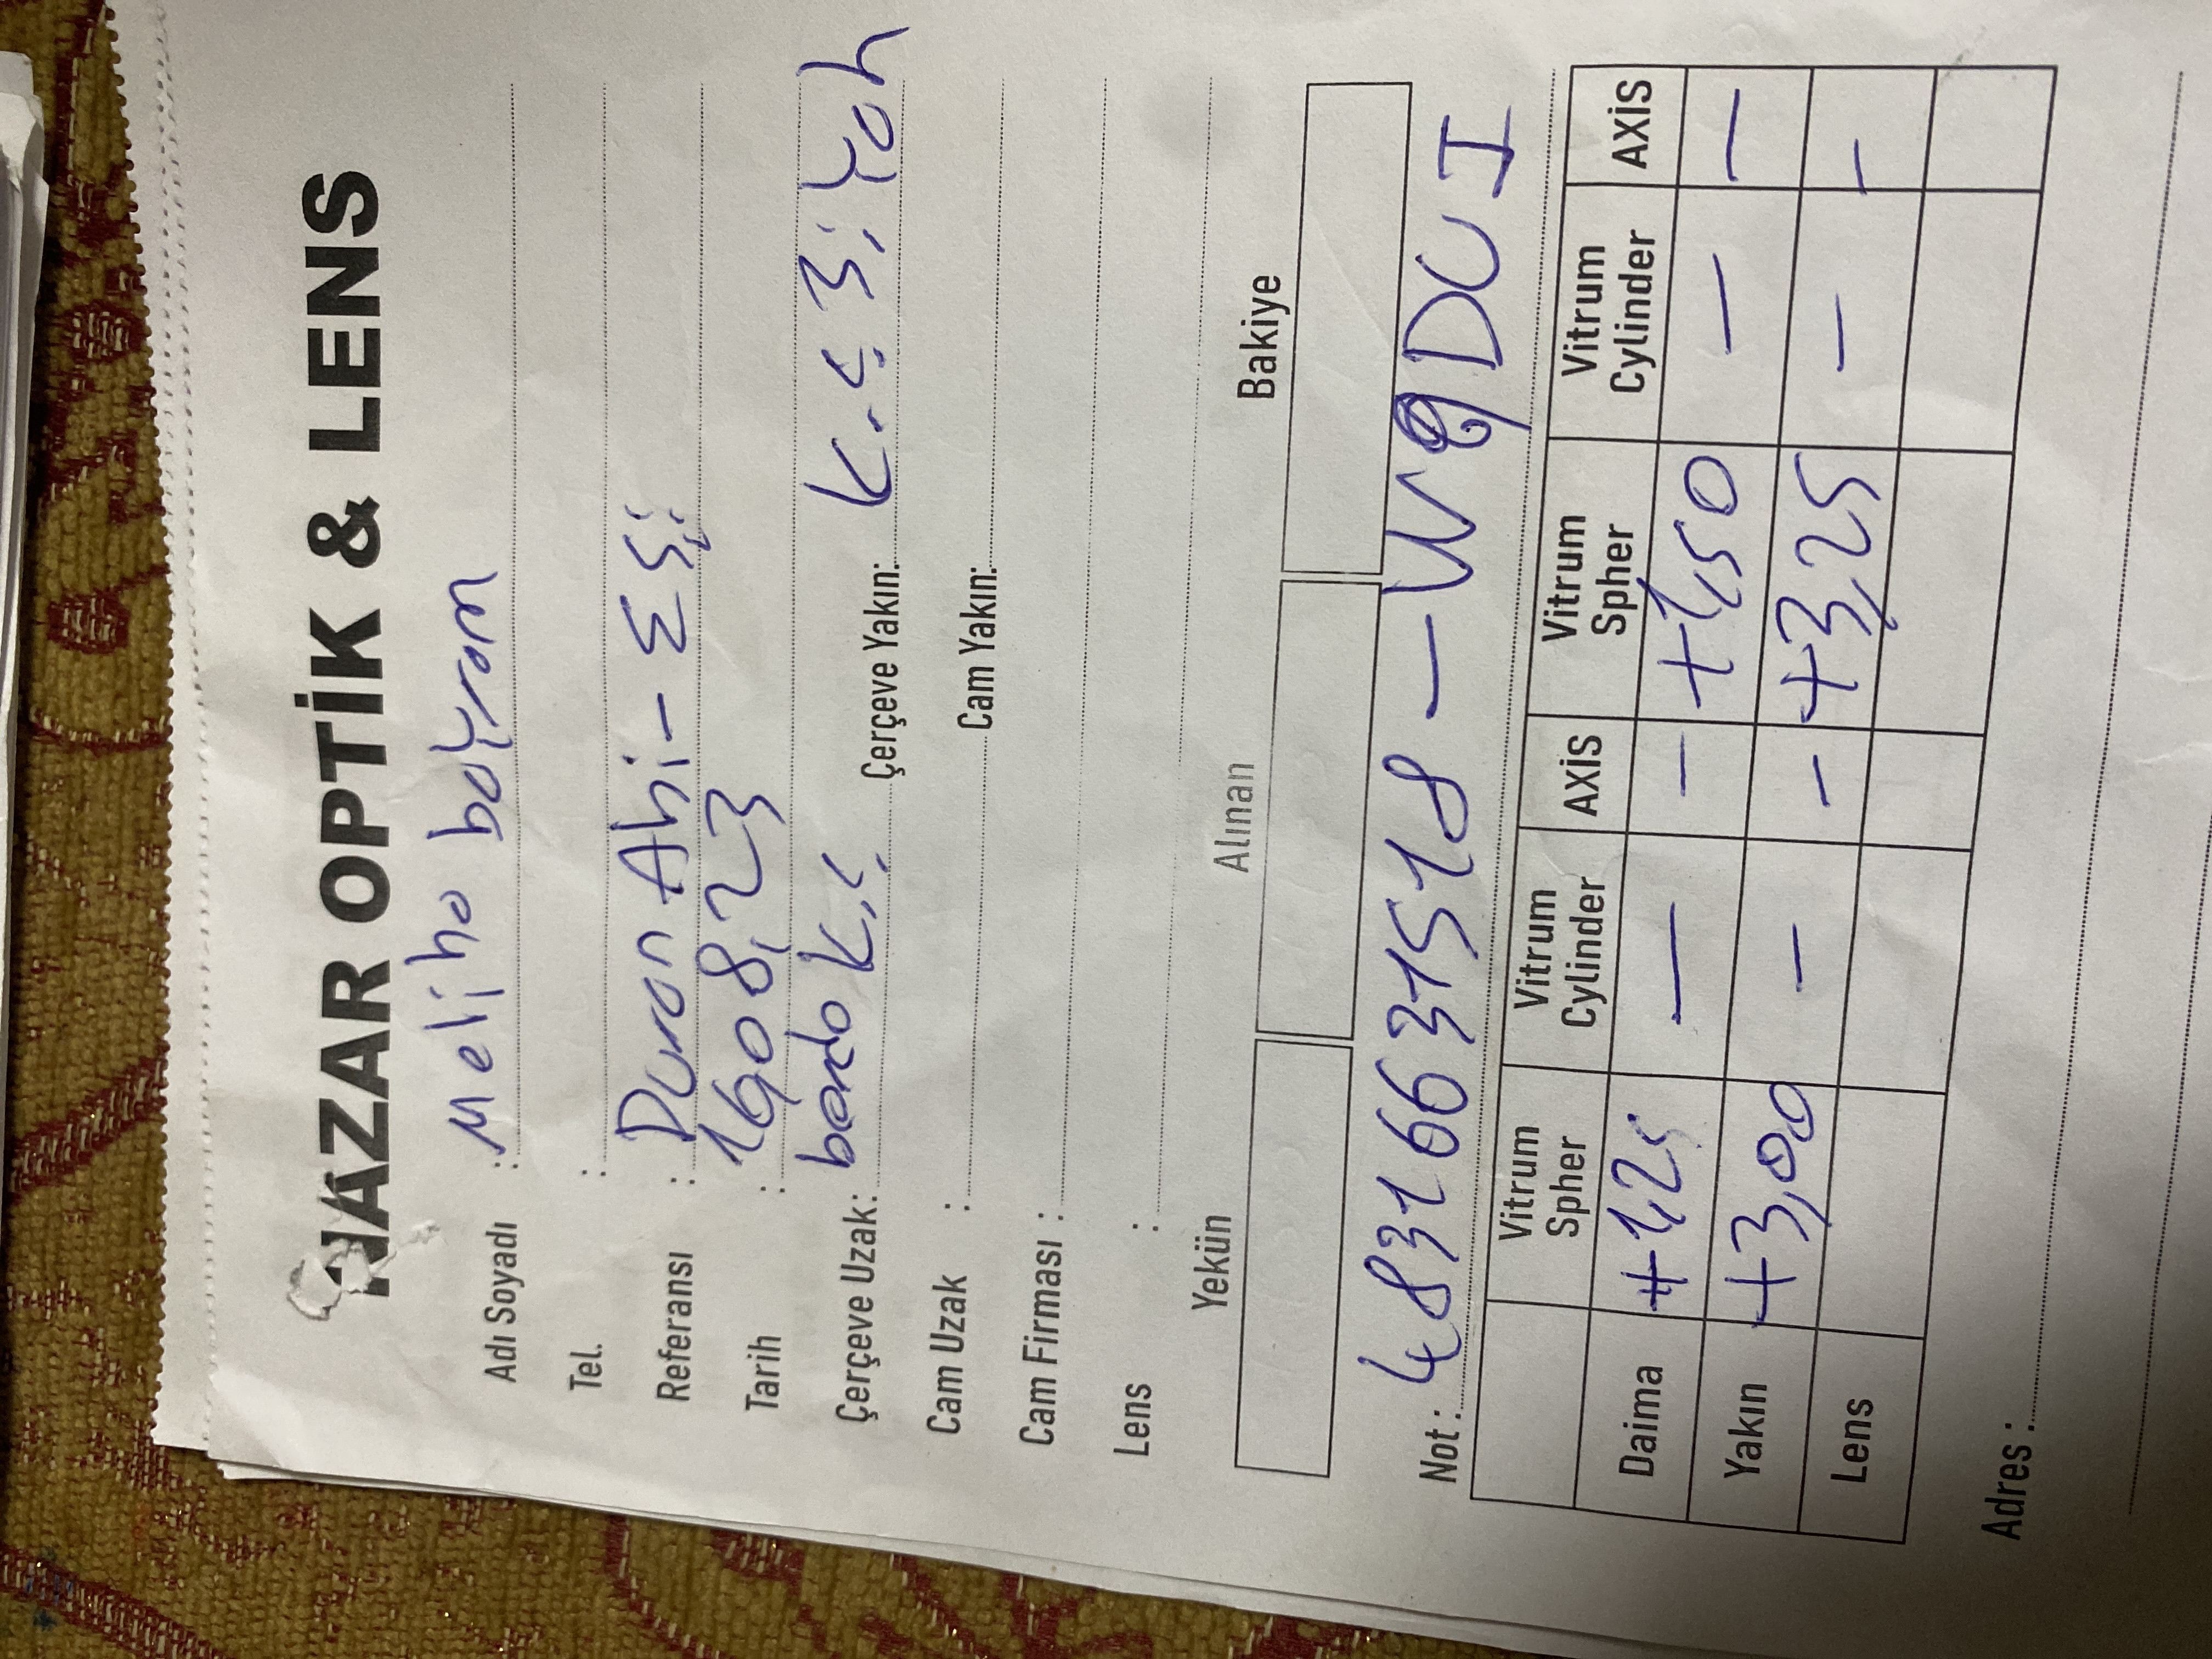 NAZAR OPTİK & LENS
Adı Soyadı : Meliha bayram
Tel. :
Referansı : Duran Abi - Eşi
Tarih : 16.08.23
Çerçeve Uzak: bordo K.Ç. Çerçeve Yakın: K.Ç. Siyah
Cam Uzak : Cam Yakın:
Cam Firması :
Lens :
Yekün Alınan Bakiye
Not : 48316631518 - W9DUI
Vitrum Spher Vitrum Cylinder AXİS Vitrum Spher Vitrum Cylinder AXİS
Daima +1,25 — — +1,50 — —
Yakın +3,00 — — +3,25 — —
Lens
Adres :